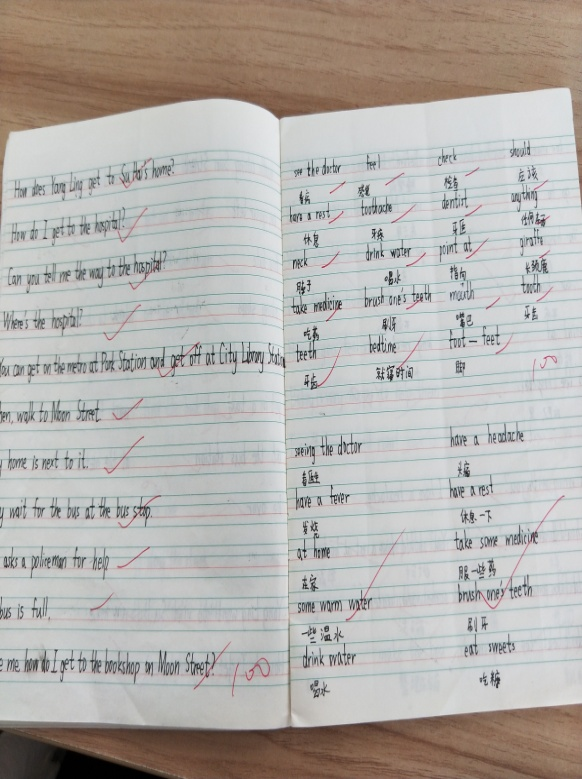 How does Yang Ling get to Su Hai's home?
How do I get to the hospital?
Can you tell me the way to the hospital?
Where's the hospital?
You can get on the metro at Park Station and get off at City Library Station
hen, walk to Moon Street.
y home is next to it.
y wait for the bus at the bus stop.
asks a policeman for help
bus is full.
e me how do I get to the bookshop on Moon Street?
100
see the doctor feel check should
看病 感觉 检查 应该
have a rest toothache dentist anything
休息 牙疼 牙医 任何东西
neck drink water point at giraffe
脖子 喝水 指向 长颈鹿
take medicine brush one's teeth mouth tooth
吃药 刷牙 嘴巴 牙齿
teeth bedtime foot — feet
牙齿 就寝时间 脚
100
seeing the doctor have a headache
看医生 头痛
have a fever have a rest
发烧 休息一下
at home take some medicine
在家 服一些药
some warm water brush one's teeth
一些温水 刷牙
drink water eat sweets
喝水 吃糖